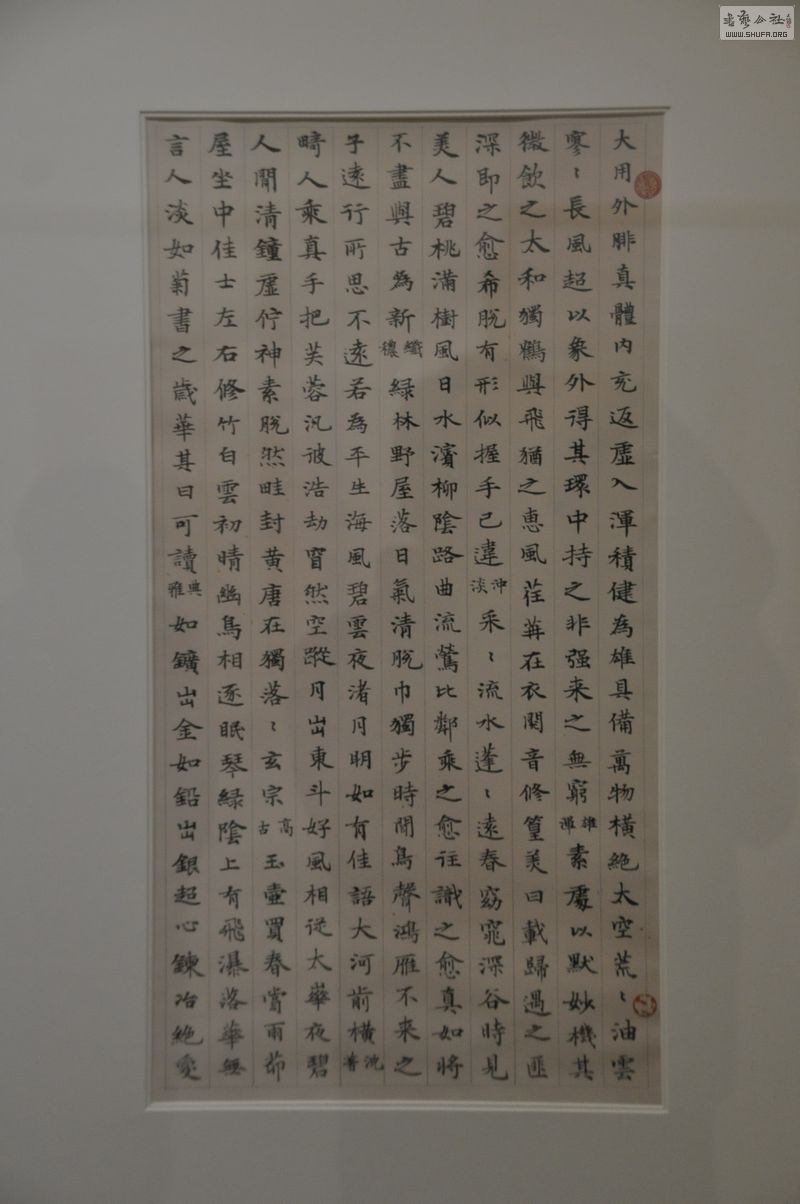 大用外腓真體内充返虛入渾積健為雄具備萬物橫絕太空荒〻油雲
寥〻長風超以象外得其環中持之非强来之無窮雄渾素處以默妙機其
微飲之太和獨鶴與飛猶之惠風荏苒在衣閱音修篁美曰載歸遇之匪
深即之愈希脱有形似握手已違沖淡采〻流水蓬〻遠春窈窕深谷時見
美人碧桃滿樹風日水濱柳陰路曲流鶯比鄰乘之愈往識之愈真如將
不盡與古為新纖穠緑林野屋落日氣清脱巾獨步時聞鳥聲鴻雁不来之
子遠行所思不遠若為平生海風碧雲夜渚月明如有佳語大河前橫沈著
畸人乘真手把芙蓉汎彼浩劫窅然空蹤月出東斗好風相從太華夜碧
人聞清鐘虛佇神素脱然畦封黄唐在獨落〻玄宗高古玉壷買春賞雨茆
屋坐中佳士左右修竹白雲初晴幽鳥相逐眠琴緑陰上有飛瀑落華無
言人淡如菊書之歲華其曰可讀典雅如鑛出金如鉛出銀超心鍊冶絕愛
書藝公社
WWW.SHUFA.ORG